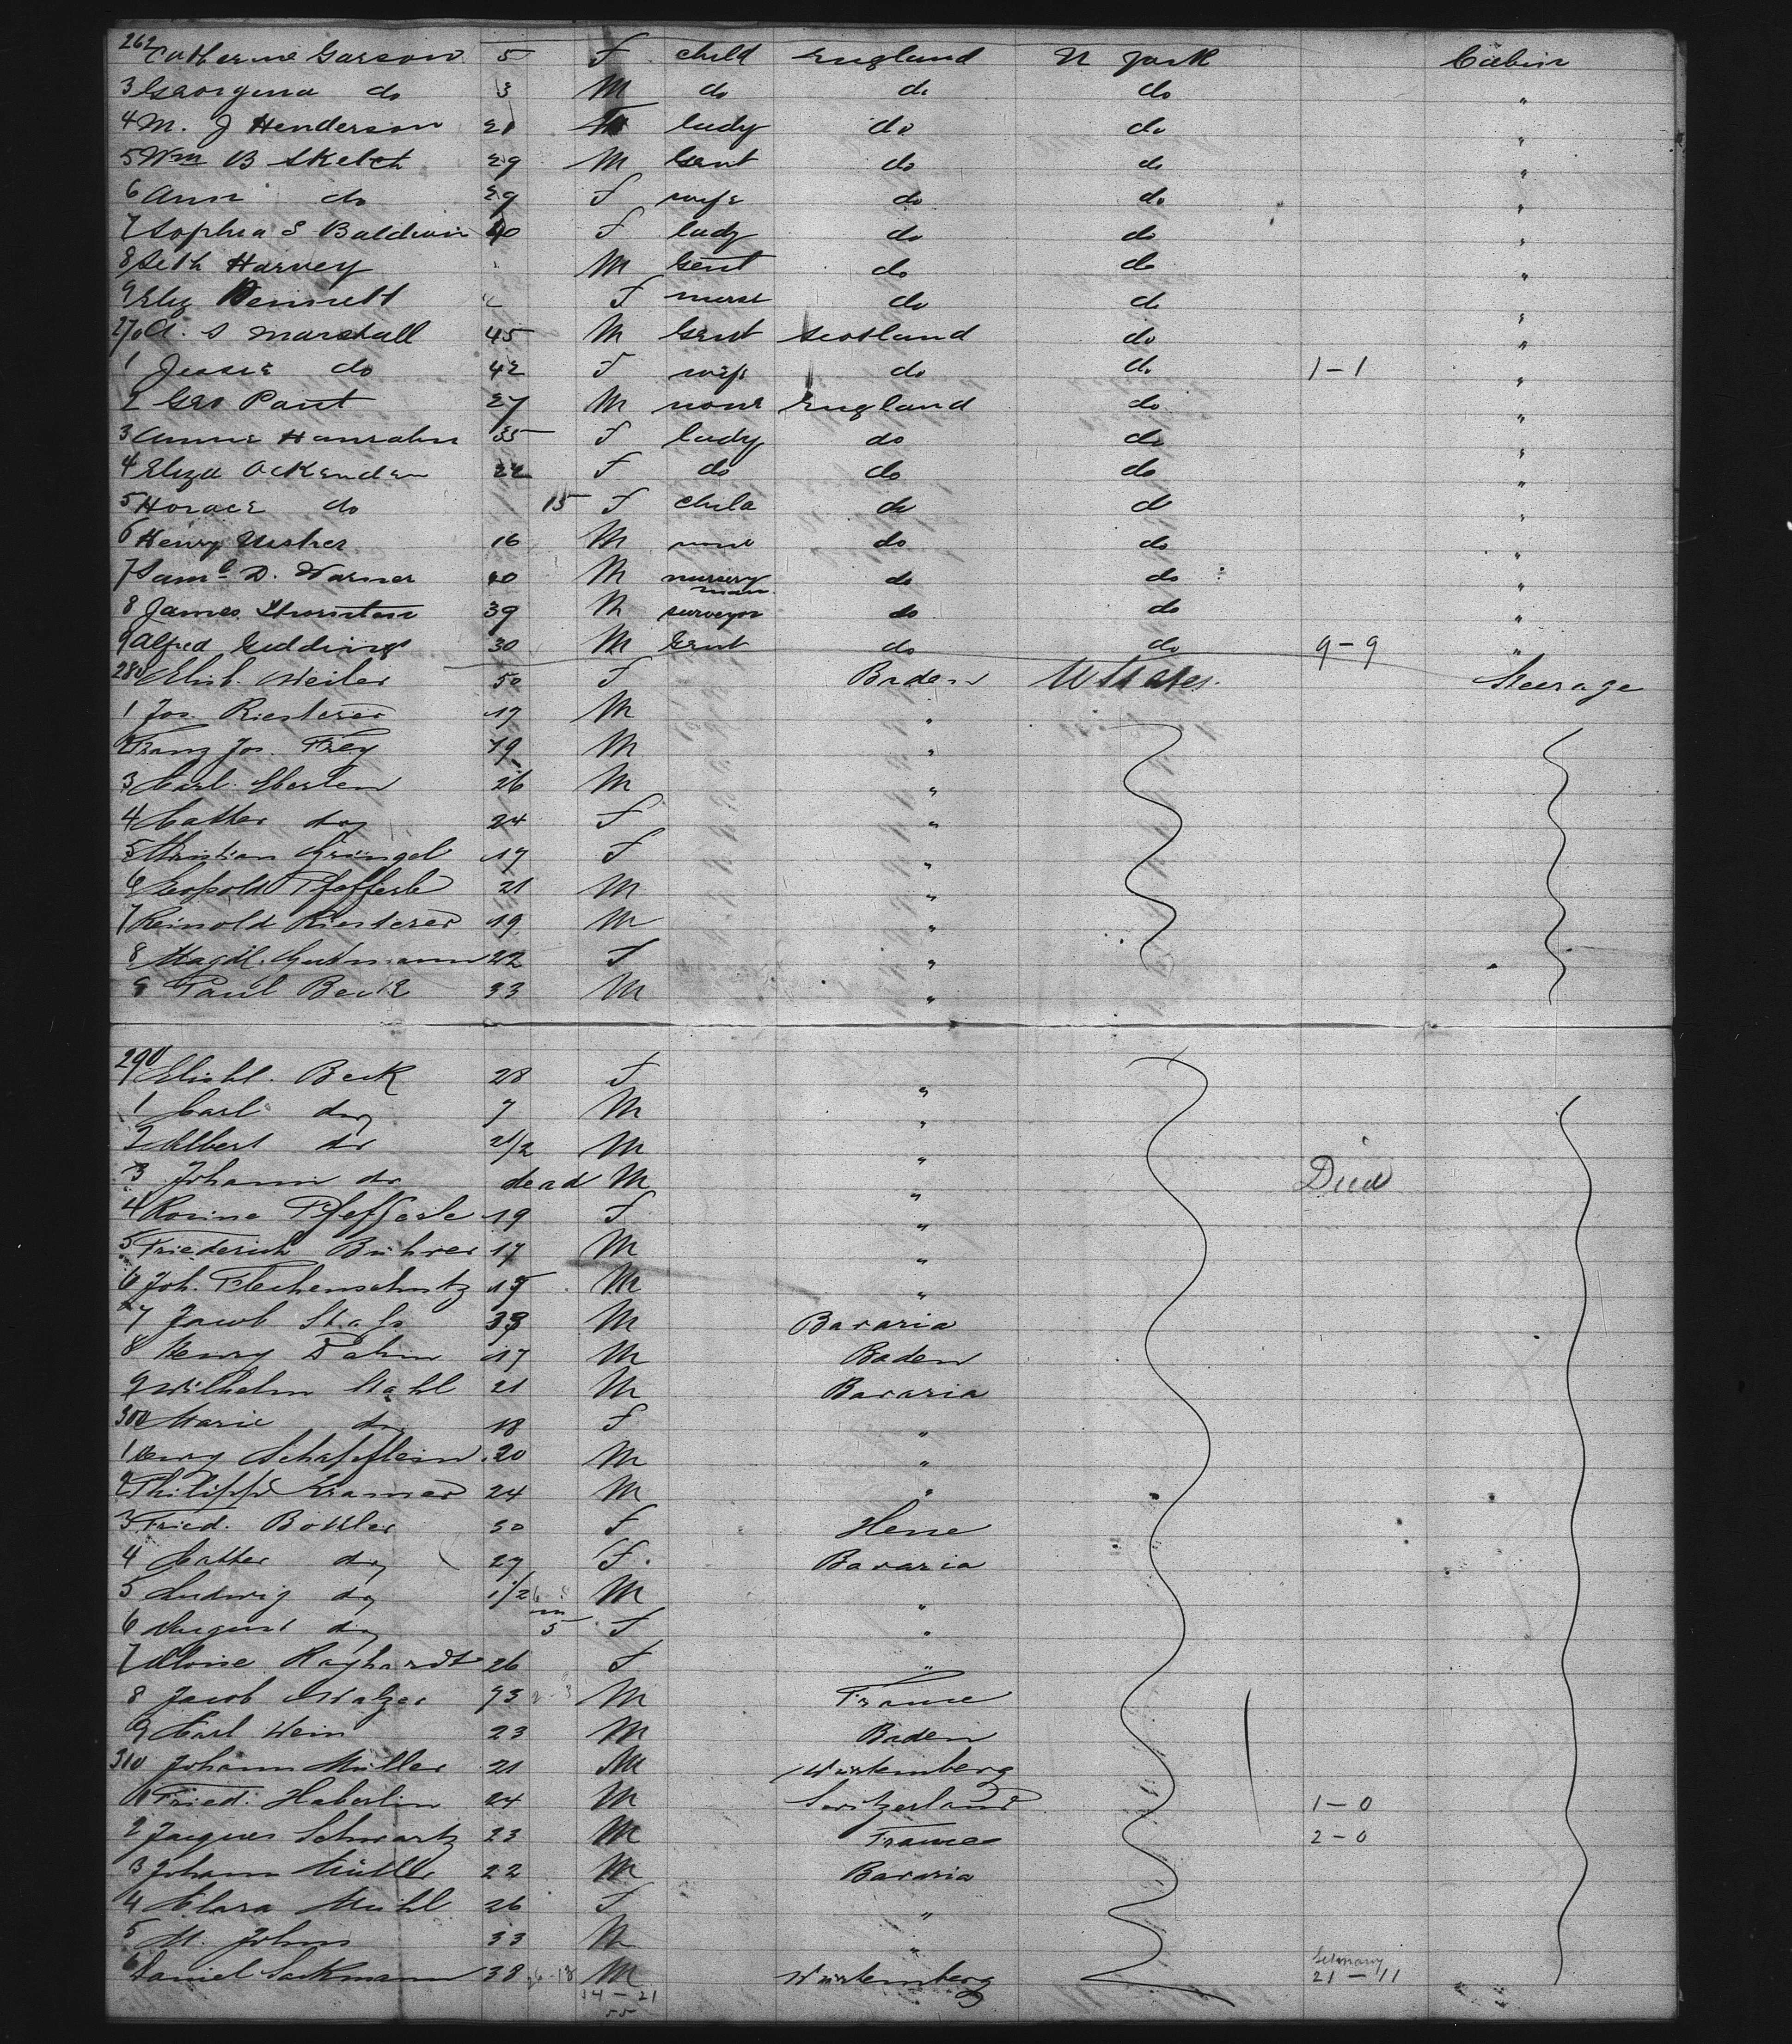 262 Catherine Garson 5 F child England N York Cabin
3 Georgina do 3 M do do do "
4 M. J Henderson 21 F lady do do "
5 Wm B Sketch 29 M Gent do do "
6 Ann do 29 F wife do do "
7 Sophia S Baldwin 40 F lady do do "
8 Seth Harvey M Gent do do "
9 Eliz Bennett F nurse do do "
270 A. S Marshall 45 M Gent Scotland do "
1 Jessie do 42 F wife do do 1-1 "
2 Geo Pant 27 M none England do "
3 Annie Hanrahn 35 F lady do do "
4 Eliza Ockenden 22 F do do do "
5 Horace do 15 F child do do "
6 Henry Ussher 16 M none do do "
7 Saml D. Warner 40 M nursery man do do "
8 James Thornton 39 M surveyor do do "
9 Alfred Giddings 30 M Gent do do 9-9 "
280 Elisb. Weiler 50 F Baden U States. Steerage
1 Jos. Riesterer 17 M "
2 Franz Jos. Frey 19 M "
3 Carl Eberlen 26 M "
4 Cather do 24 F "
5 Christian 17 F "
6 Leopold Pfefferle 21 M "
7 Reinold Riesterer 19 M "
8 Magdl. Gutmann 22 F "
9 Paul Beck 33 M "
290 Elisbt. Beck 28 F "
1 Carl do 7 M "
2 Albert do 2 1/2 M "
3 Johann do dead M " Died
4 Rosine Pfefferle 19 F "
5 Friederich Bührer 17 M "
6 Joh. Flechenschutz 19 M "
7 Jacob 33 M Bavaria
8 Henry Dahm 17 M Baden
9 Wilhelm Stahl 21 M Bavaria
300 Marie do 18 F "
1 Henry Schäfflein 20 M "
2 Philipp Kramer 24 M "
3 Fried. Bottler 30 F Hesse
4 Cather do 27 F. Bavaria
5 Ludwig do 1 1/2 M "
6 August do m 5 F "
7 Aloise Rayhardt 26 F "
8 Jacob Walzer 73 M France
9 Carl Wein 23 M Baden
310 Johann Müller 21 M Würtemberg
1 Fried. Haberlin 24 M Switzerland 1-0
2 Jacques Schwartz 23 M France 2-0
3 Johann Müller 22 M Bavaria
4 Clara Mühl 26 F "
5 M. Johns 33 M "
6 Daniel Sackmann 38 M Würtemberg Germany 21-11 "
34-21
55